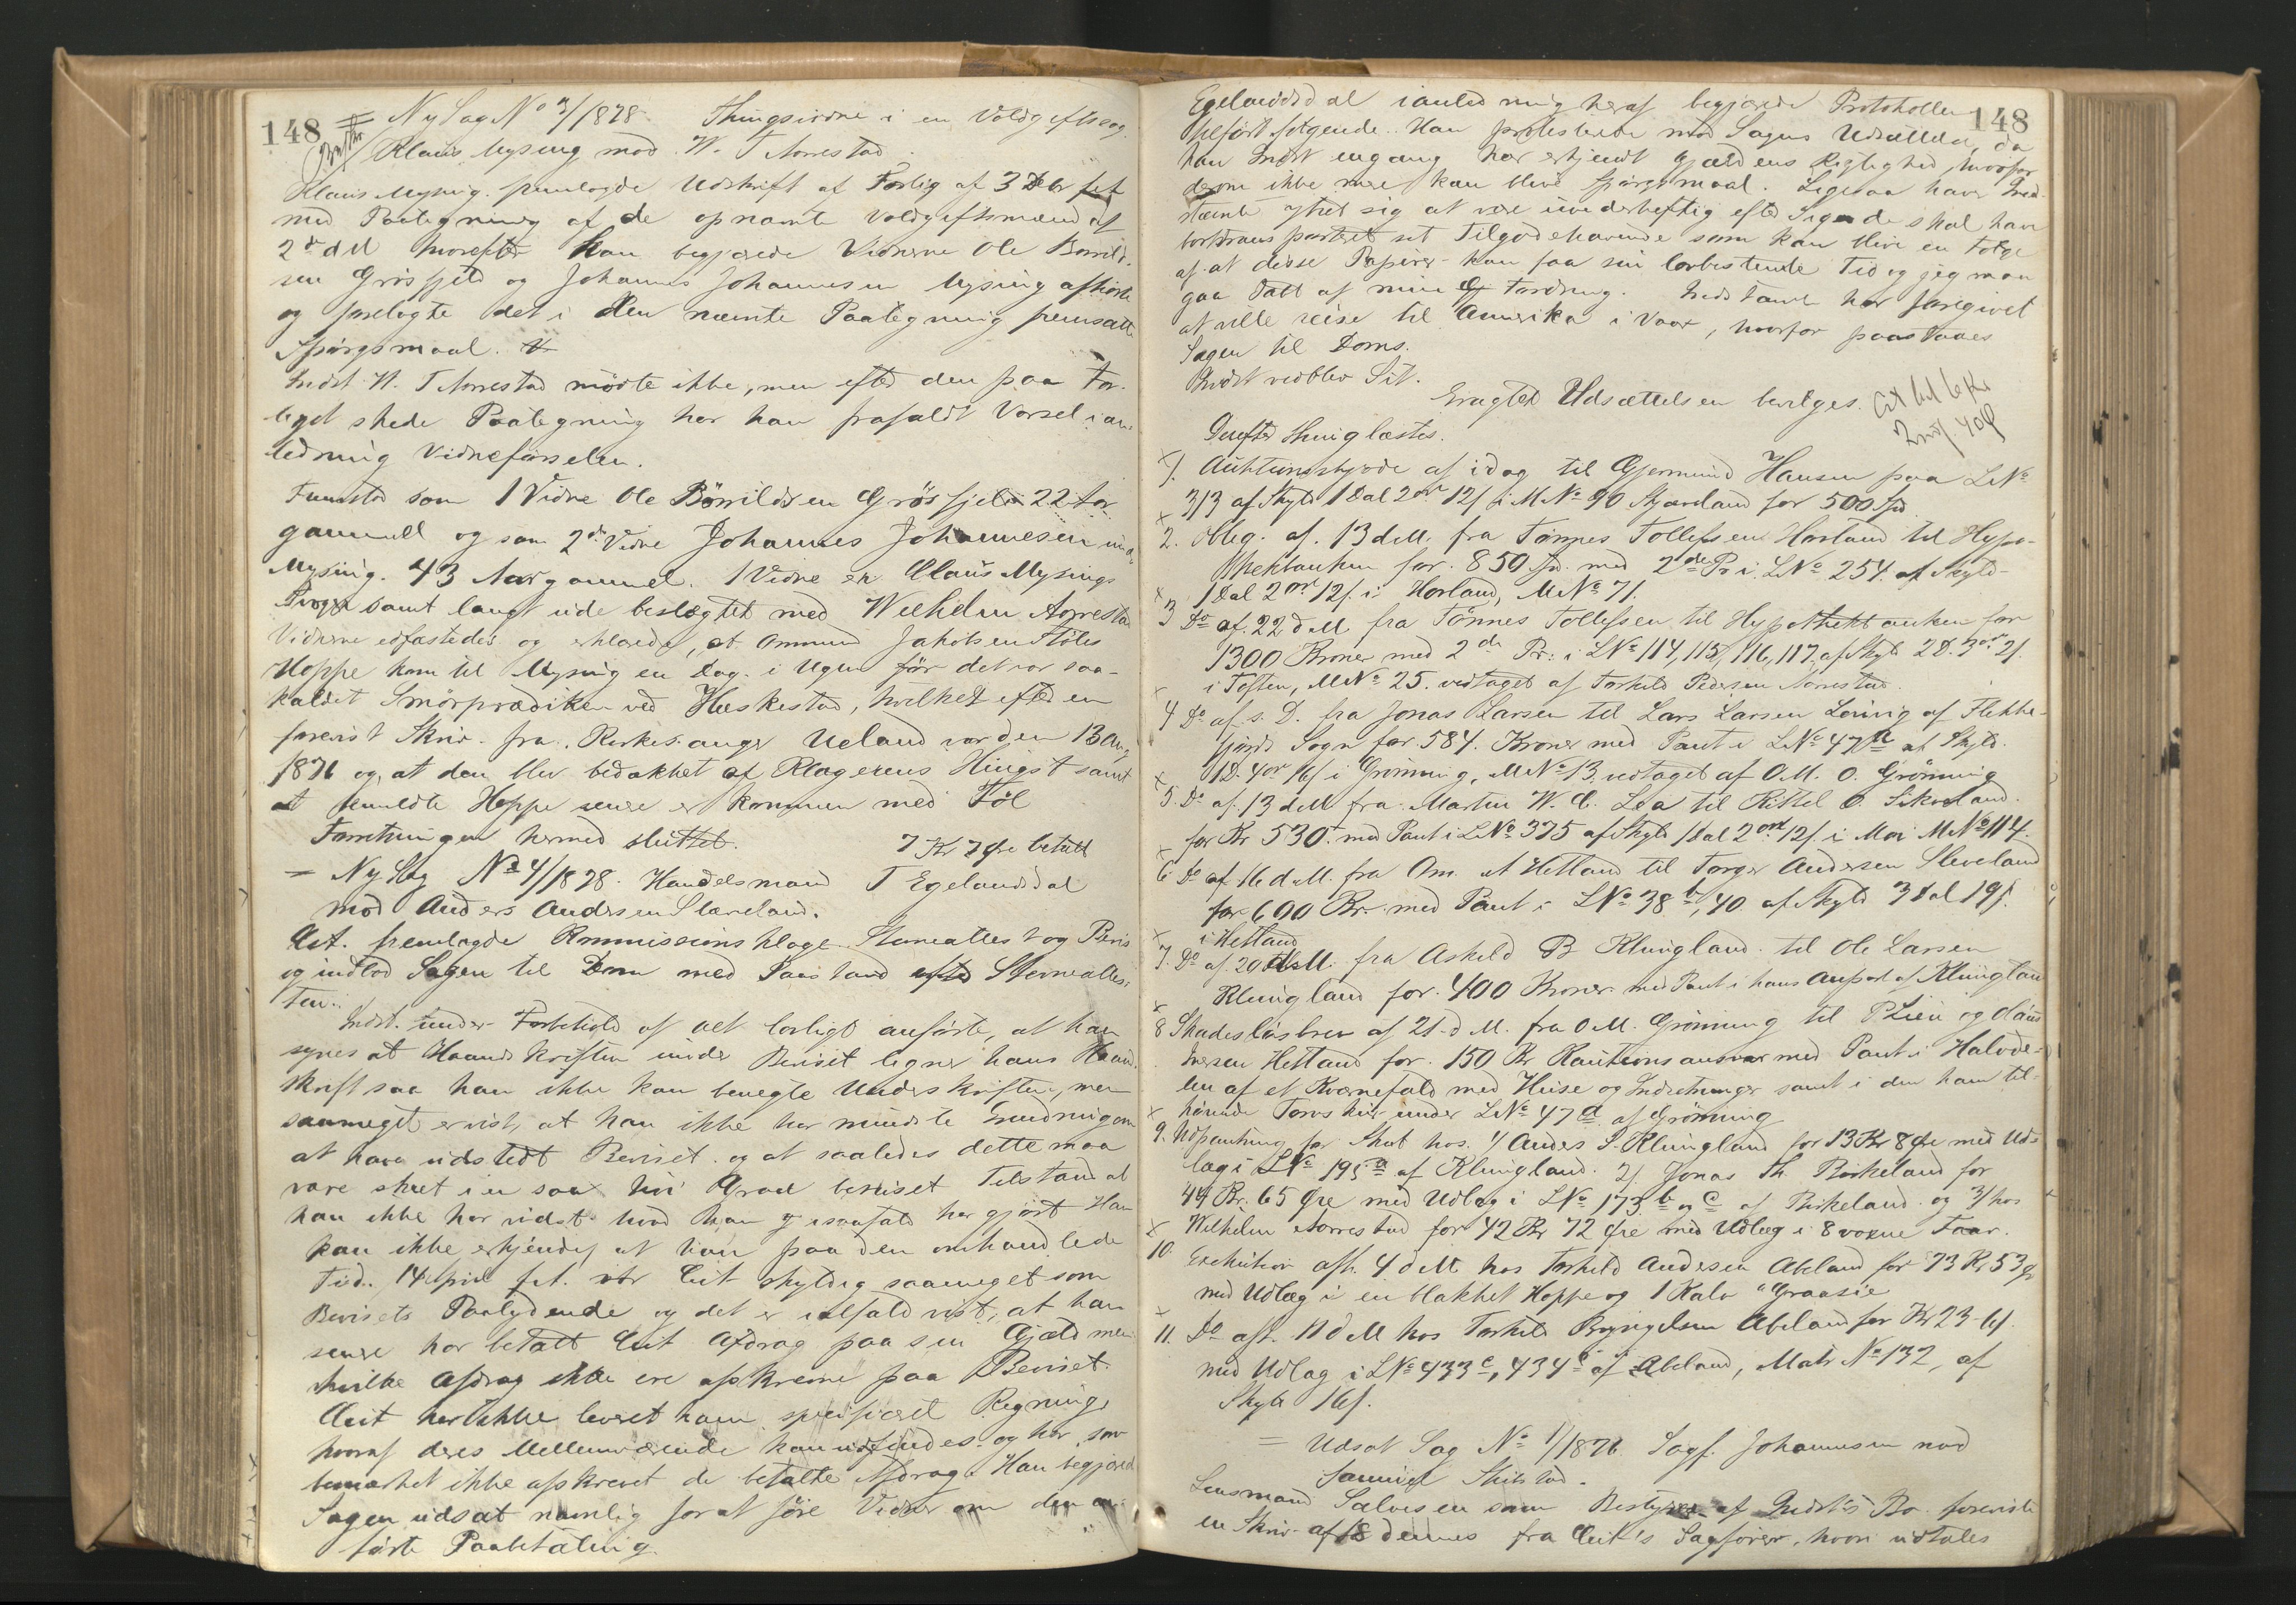 148
= Ny Sag No 3/1878. Thingsvidne i en Voldgiftssag
Klaus Mysing mod W. T Aarrestad.
Klaus Mysing fremlagde Udskrift af Forlig af 3 Debr
med Paategning af de opnævnte Voldgiftsmænd af
2den dM hvorefter han begjærede Vidnerne Ole Børild-
sen Grøsfjeld og Johannes Johannesen Mysing afhørte
og forelagte det i den nævnte Paategning fremsatte
Spørgsmaal.
Indst. W. T Aarrestad mødte ikke, men efter den paa For-
liget skede Paategning har han frafaldt Varsel i an-
ledning Vidneførselen.
Fremstod som 1 Vidne Ole Børildsen Grøsfjeld 22 Aar
gammel og som 2det Vidne Johannes Johannesen
Mysing. 43 Aar gammel. 1 Vidne er Claus Mysings
samt langt ude beslægtet med Wilhelm Aarrestad
Vidnerne edfæstedes og erklærede, at Ommund Jakobsen Støles
Hoppe kom til Mysing en Dag i Ugen før det var saa-
kaldet Smørprædiken ved Heskestad, hvilket efter en
forevist Skriv. fra Kirkesanger Ueland var den 13 Aug
1876 og at den blev bedækket af Klagerens Hingst samt
at bemeldte Hoppe senere er kommen med Føl
Forretningen hermed sluttet. 7 Kr 7 Øre betalt
= Ny Sag No 4/1878. Handelsmand T Egelandsdal
mod Anders Andersen Slæveland.
Cit. fremlagde Kommissionsklage Stevneattest og Bevis
og indlod Sagen til Dom med Paastand efter Stevneattes-
ten.
Indst. under Forbehold af alt lovligt anførte, at han
synes at Haandskriften under Beviset ligner hans Haand-
skrift saa han ikke kan benegte Underskriften, men
saameget er vist, at han ikke har mindste Erindring om
at have udstedt Beviset og at saaledes dette maa
være skeet i en saa høi Grad beruset Tilstand at
han ikke har vidst hvad han i saafald har gjort Han
kan ikke erkjende, at han paa den omhandlede
Tid. 14 April f.A. var Cit skyldig saameget som
Bevisets Paalydende og det er ialfald vist, at han
senere har betalt Cit Afdrag paa sin Gjæld men
hvilke Afdrag ikke ere afskrevne paa Beviset.
Cit har ikke leveret ham specificeret Regning
hvoraf deres Mellemværende kan udfindes og har som
bemærket ikke afskrevet de betalte Afdrag. Han begjæred
Sagen udsat nemlig for at føre Vidner om den an-
førte Paabetaling.
148
Egelandsdal i anledning heraf begjærede Protokollen
tilført følgende. Han protesterede mod Sagens Udsættelse, da
han Indst engang har erkjendt Gjældens Rigtighed, hvorfor
derom ikke mere kan blive Spørgsmaal. Ligesaa have Ind-
stævnte ytret sig at være uvederheftig efter Sigende skal have
borttransporteret sit Tilgodehavende som kan blive en Følge
af at disse Papirer kan faa sin lovbestemte Tid og jeg maa
gaa Tabt af min Fordring. Indstævnte har foregivet
at ville reise til Amerika i Vaar, hvorfor paastaaes
Sagen til Doms.
Indst vedblev Sit.
Eragtet Udsættelsen bevilges. Cit bet 6 Kr
Indst 40 Ø
Derefter thinglæstes.
1. Auktionsskjøde af idag til Gjermund Hansen paa LNo
313 af Skyld 1 Dal 2 ort 12 s i MNo 90 Skjæveland for 500 Spd
2. Oblig. af 13 dM. fra Tønnes Tollefsen Horland til Hypo-
thekbanken for 850 Spd. med 2den Pr. i LNo 254. af Skyld
1 Dal 2 ort 12 s. i Horland, MNo 71.
3 Do af 22 dM fra Tønnes Tollefsen til Hypothekbanken for
1300 Kroner med 2den Pr. i LNo 114, 115, 116, 117. af Skyld 2 D. 3 ort 2 s.
i Toften, MNo 25. vedtaget af Torkild Pedersen Aarrestad.
4 Do af s. D. fra Jonas Larsen til Lars Larsen Løining af Flekke-
fjords Sogn for 584. Kroner med Pant i LNo 47 a af Skyld.
1 D. 4 ort 16 s i Grønning, MNo 13. vedtaget af O M. O. Grønning
5. Do af 13 dM fra Martin W. C. Lea til Kittel O. Sikveland.
for Kr 530. med Pant i LNo 375 af Skyld 1 Dal 2 ort 12 s. i Moi MNo 114.
6. Do af 16 dM. fra Om. A Hetland til Torger Andersen Sleveland
for 600 Kr. med Pant i LNo 38 b, 40. af Skyld 3 Dal 19 s.
i Hetland
7. Do af 20 dM. fra Askild B Klungland til Ole Larsen
Klungland for 400 Kroner med Pant i hans Anpart af Klungland
8 Skadesløsbrev af 21. d M. fra O M. Grønning til P Lien og
Hetland for 150 Kr Kautionsansvar med Pant i Halvde-
len af et Kværnefald med Huse og Indretninger samt i den ham til-
hørende Torvskur under LNo 47 a. af Grønning
9. Udpantning for Skat hos 1/ Anders S. Klungland for 13 Kr 8 Øre med Ud-
læg i LNo 195 a af Klungland. 2/ Jonas Th. Birkeland for
44 Kr. 65 Øre med Udlæg i LNo 173 b og c af Birkeland og 3/ hos
Wilhelm Aarrestad for 42 Kr 72 Øre med Udlæg i 8 voxne Faar.
10. Exekution afh. 4 dM hos Torkild Andersen Abeland for 73 Kr 53 Ør
med Udlæg i en blakket Hoppe og 1 Kalv "Graasie
11. Do afh. 11 dM hos Torkild Bryngelsen Abeland for Kr 23.61
med Udlæg i LNo 433 c, 434 c af Abeland, Matr No 132, af
Skyld 16 s.
= Udsat Sag No 1/1876. Sagf. Johannesen mod
Lensmand Salvesen som Bestyrer af Indst's Bo foreviste
en Skriv. af 18 dennes fra Cit's Sagfører, hvori udtales